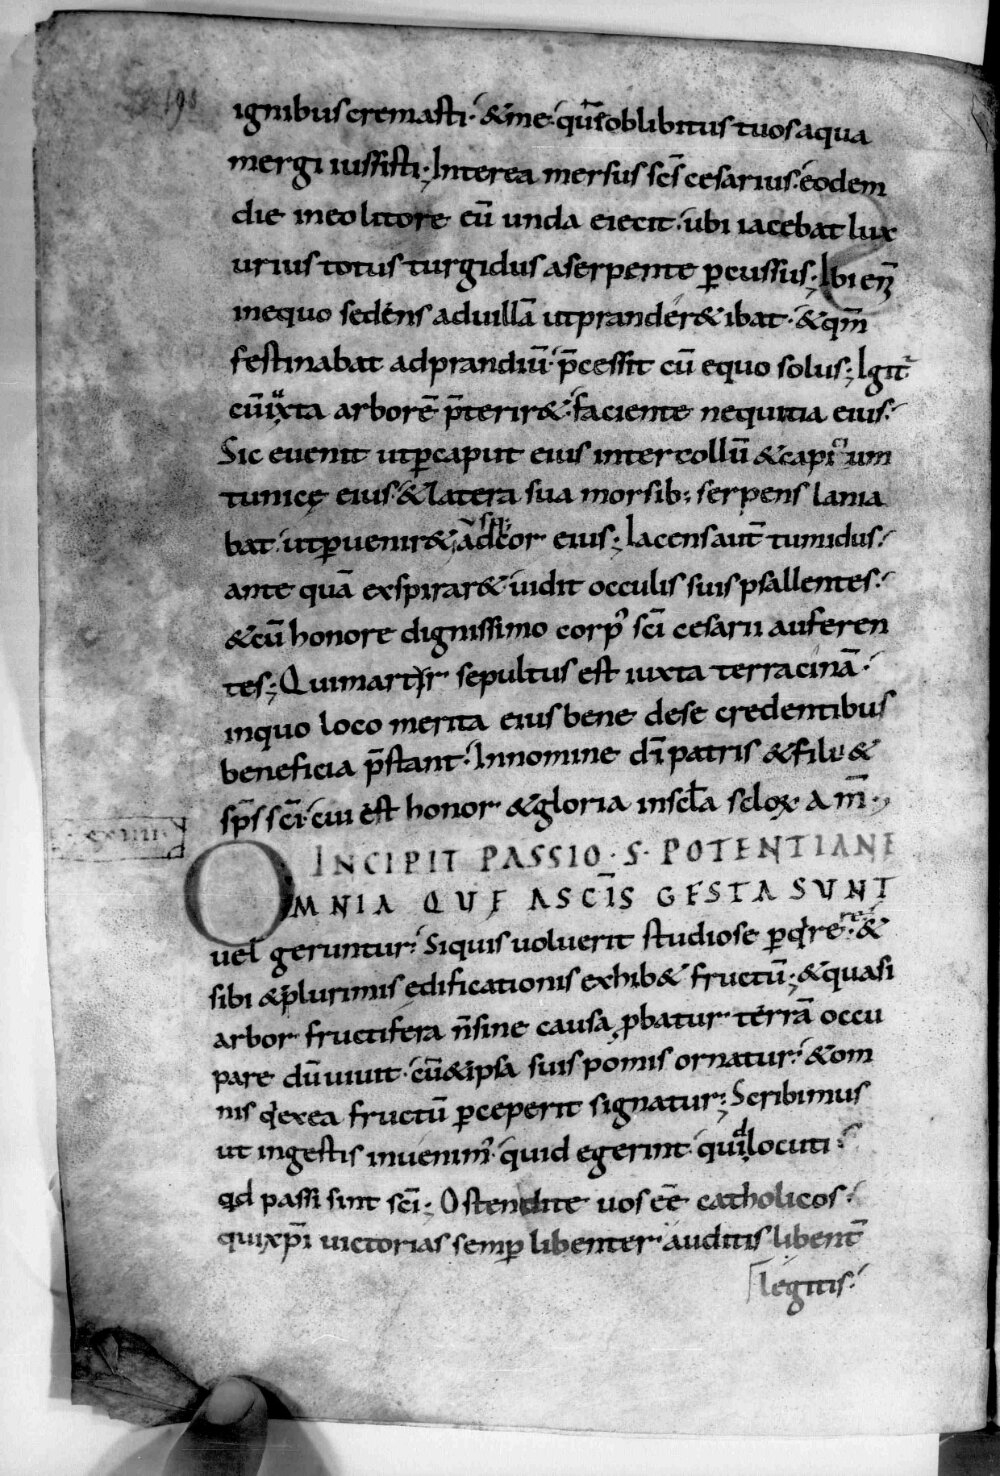 198
ignibus cremasti· &me· quē oblibitus tuos aqua
mergi iussisti; Interea mersus sc̄s cesarius· eodem
die ineo litore eū unda eiecit· ubi iacebat lux
urius totus turgidus aserpente ꝑcussus; Ibi eni᷒
inequo sedens aduillā utprander& ibat· &qm̄
festinabat adprandiū· p̄cessit cū equo solus; Igit᷑
cū iuxta arborē p̄terir&· faciente nequitia eius·
Sic euenit utꝑcaput eius intercollū &capitium
tunicę eius· &latera sua morsib; serpens lania
bat· utꝑuenir& adcor eius; Iacens aut̄ tumidus·
ante quā exspirar& uidit occulis suis psallentes·
&cū honore dignissimo corp᷒ sc̄i cesarii auferen
tes; Qui martyr sepultus est iuxta terracinā·
inquo loco merita eius bene dese credentibus
beneficia p̄stant· Innomine dī patris &filii &
sp̄s sc̄i· cui est honor &gloria insc̄la sc̄loꝝ am̄·
INCIPIT PASSIO· S· POTENTIANE
OMNIA QUE ASC̄IS GESTA SUNT
uel geruntur· Siquis uoluerit studiose ꝑqrere· &
sibi &plurimis edificationis exhib& fructū; &quasi
arbor fructifera n̄sine causa ꝓbatur terrā occu
pare dū uiuit· cū&ipsa suis pomis ornatur· &om
nis q̇exea fructū ꝑceperit signatur; Scribimus
ut ingestis inuenim᷒· quid egerint· quid locuti·
qd passi sint sc̄i; Ostendite uos eē catholicos·
quixp̄i uictorias semꝑ libenter auditis libent̄
legitis·